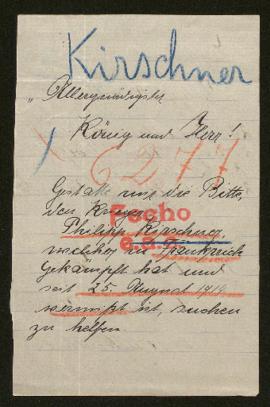 Kirschner
„Allergnädigster
König und Herr!
6277
Gestatte mir die Bitte,
den Krieger
Fecho
Philipp Kirschner,
welcher in Frankreich
gekämpft hat und
seit 25. August 1914
vermißt ist, suchen
zu helfen